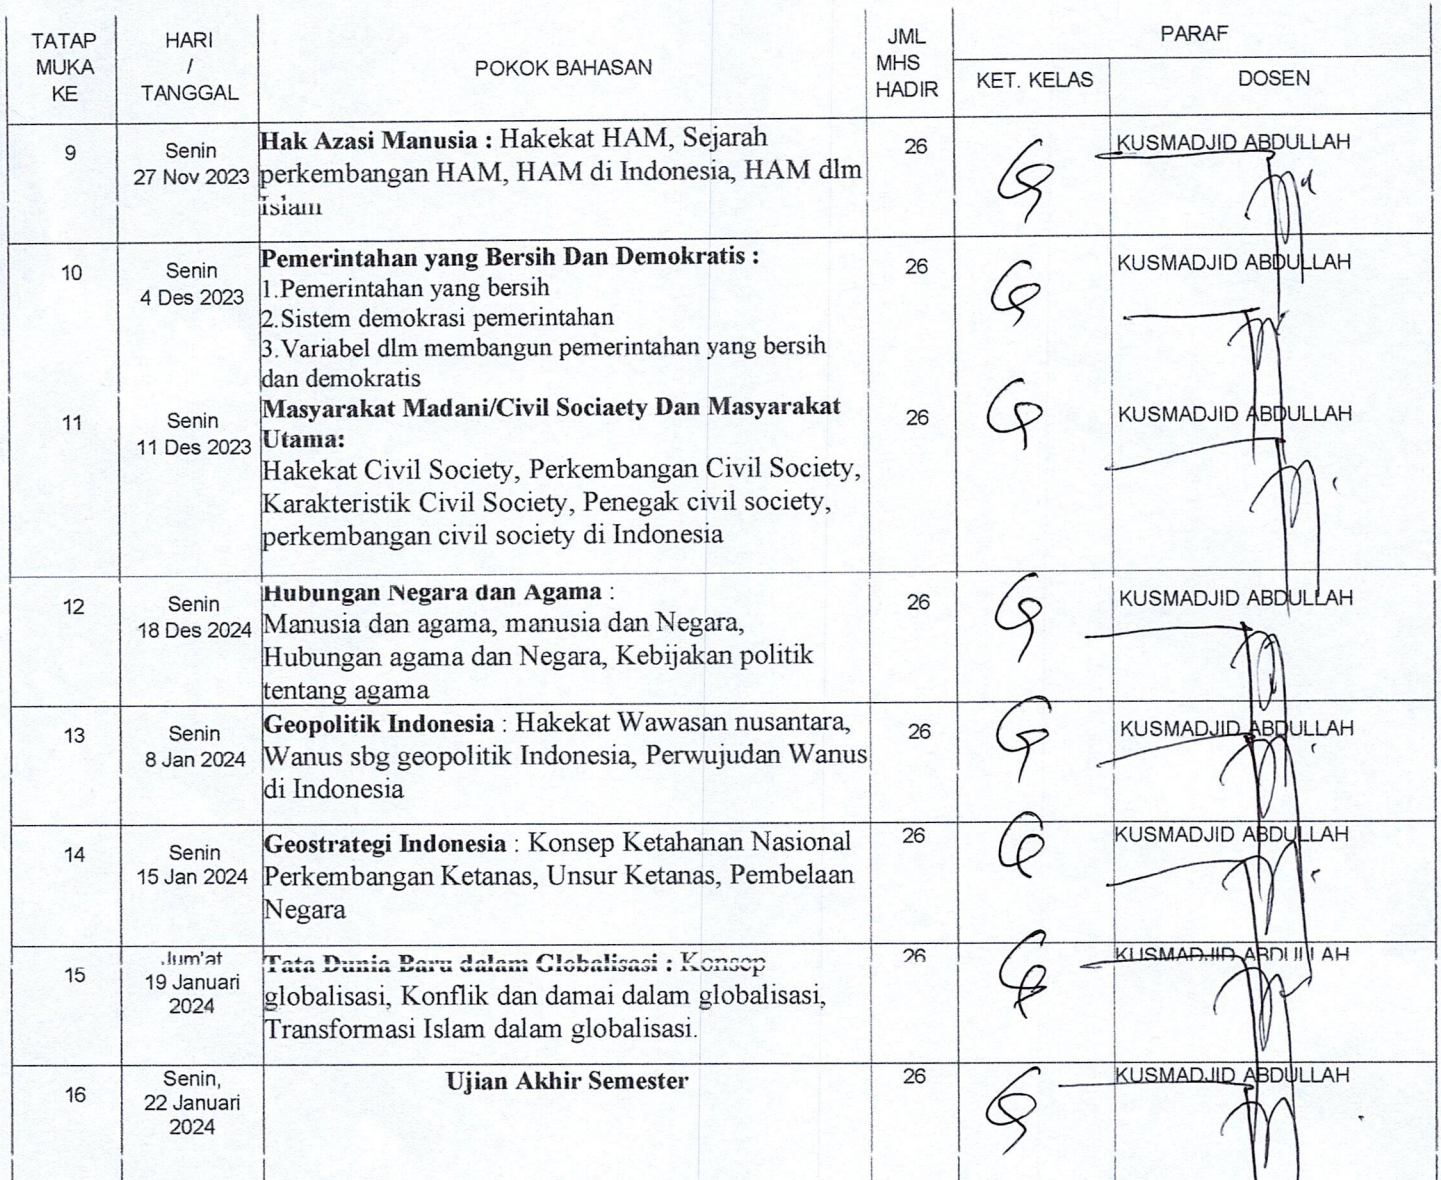 TATAP MUKA KE
HARI / TANGGAL
POKOK BAHASAN
JML MHS HADIR
PARAF
KET. KELAS
DOSEN
9
Senin
27 Nov 2023
Hak Azasi Manusia : Hakekat HAM, Sejarah
perkembangan HAM, HAM di Indonesia, HAM dlm
Islam
26
KUSMADJID ABDULLAH
10
Senin
4 Des 2023
Pemerintahan yang Bersih Dan Demokratis :
1.Pemerintahan yang bersih
2.Sistem demokrasi pemerintahan
3.Variabel dlm membangun pemerintahan yang bersih
dan demokratis
26
KUSMADJID ABDULLAH
11
Senin
11 Des 2023
Masyarakat Madani/Civil Sociaety Dan Masyarakat
Utama:
Hakekat Civil Society, Perkembangan Civil Society,
Karakteristik Civil Society, Penegak civil society,
perkembangan civil society di Indonesia
26
KUSMADJID ABDULLAH
12
Senin
18 Des 2024
Hubungan Negara dan Agama :
Manusia dan agama, manusia dan Negara,
Hubungan agama dan Negara, Kebijakan politik
tentang agama
26
KUSMADJID ABDULLAH
13
Senin
8 Jan 2024
Geopolitik Indonesia : Hakekat Wawasan nusantara,
Wanus sbg geopolitik Indonesia, Perwujudan Wanus
di Indonesia
26
KUSMADJID ABDULLAH
14
Senin
15 Jan 2024
Geostrategi Indonesia : Konsep Ketahanan Nasional
Perkembangan Ketanas, Unsur Ketanas, Pembelaan
Negara
26
KUSMADJID ABDULLAH
15
Jum'at
19 Januari
2024
Tata Dunia Baru dalam Globalisasi : Konsep
globalisasi, Konflik dan damai dalam globalisasi,
Transformasi Islam dalam globalisasi.
26
KUSMADJID ABDULLAH
16
Senin,
22 Januari
2024
Ujian Akhir Semester
26
KUSMADJID ABDULLAH